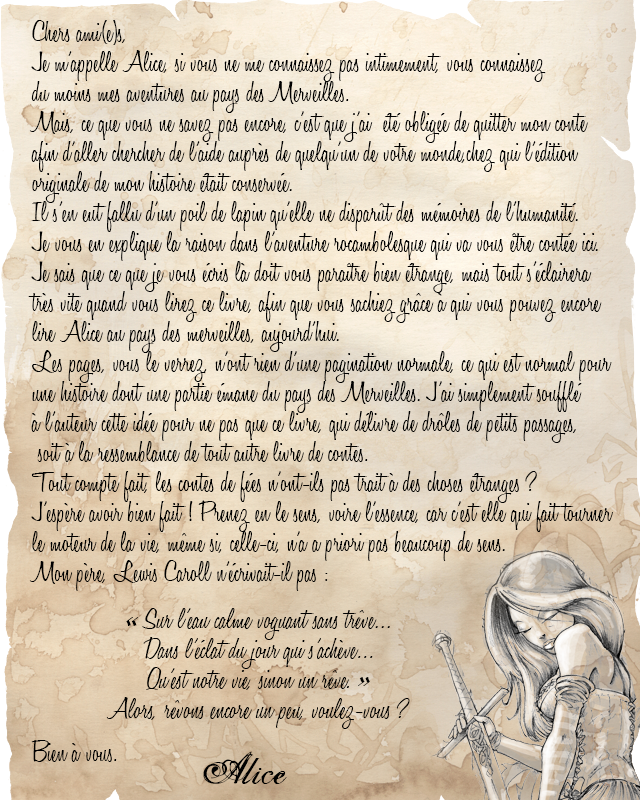 Chers ami(e)s,
Je m'appelle Alice, si vous ne me connaissez pas intimement, vous connaissez
du moins mes aventures au pays des Merveilles.
Mais, ce que vous ne savez pas encore, c'est que j'ai été obligée de quitter mon conte
afin d'aller chercher de l'aide auprès de quelqu'un de votre monde,chez qui l'édition
originale de mon histoire était conservée.
Il s'en eut fallu d'un poil de lapin qu'elle ne disparût des mémoires de l'humanité.
Je vous en explique la raison dans l'aventure rocambolesque qui va vous être contée ici.
Je sais que ce que je vous écris là doit vous paraître bien étrange, mais tout s'éclairera
très vite quand vous lirez ce livre, afin que vous sachiez grâce à qui vous pouvez encore
lire Alice au pays des merveilles, aujourd'hui.
Les pages, vous le verrez, n'ont rien d'une pagination normale, ce qui est normal pour
une histoire dont une partie émane du pays des Merveilles. J'ai simplement soufflé
à l'auteur cette idée pour ne pas que ce livre, qui délivre de drôles de petits passages,
soit à la ressemblance de tout autre livre de contes.
Tout compte fait, les contes de fées n'ont-ils pas trait à des choses étranges ?
J'espère avoir bien fait ! Prenez en le sens, voire l'essence, car c'est elle qui fait tourner
le moteur de la vie, même si, celle-ci, n'a a priori pas beaucoup de sens.
Mon père, Lewis Caroll n'écrivait-il pas :
« Sur l'eau calme voguant sans trêve...
Dans l'éclat du jour qui s'achève...
Qu'est notre vie, sinon un rêve. »
Alors, rêvons encore un peu, voulez-vous ?
Bien à vous.
Alice